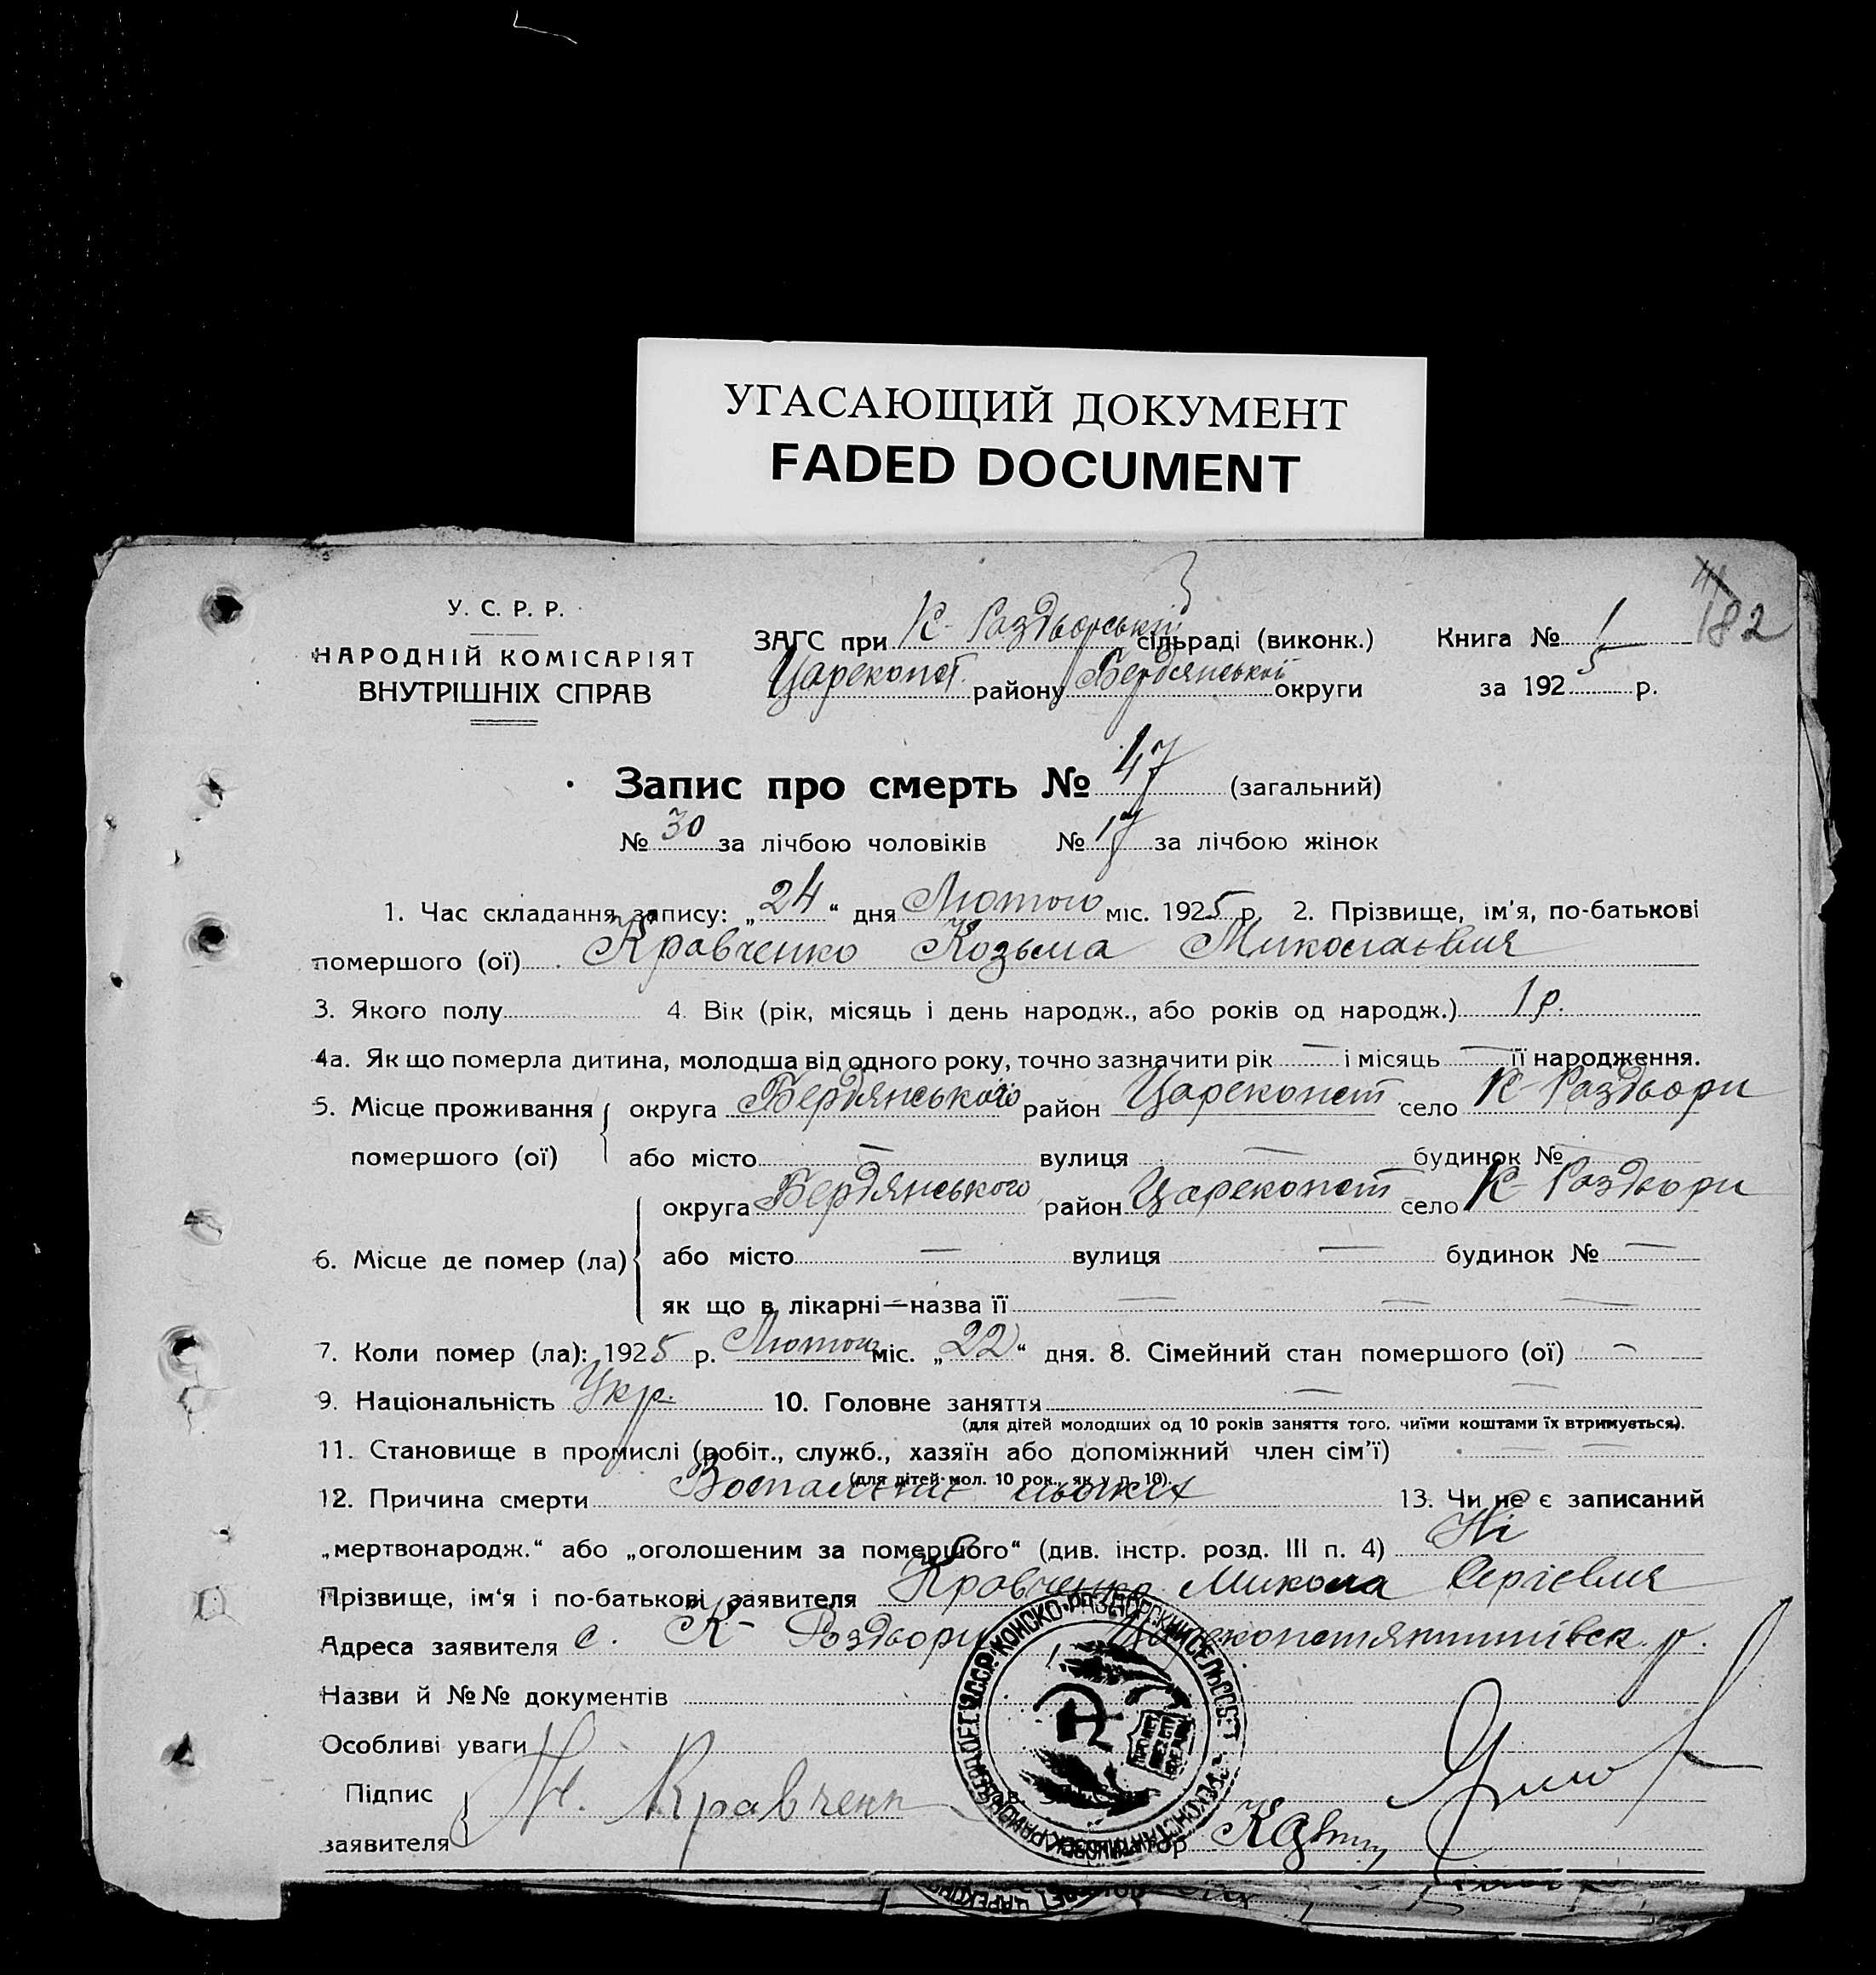 УГАСАЮЩИЙ ДОКУМЕНТ
FADED DOCUMENT
182
У. С. Р. Р.
НАРОДНІЙ КОМІСАРІЯТ
ВНУТРІШНІХ СПРАВ
ЗАГС при К-Раздьорській сільраді (виконк.) Книга № 1
Цареконст. району Бердянської округи за 1925 р.
Запис про смерть № 47 (загальний)
№ 30 за лічбою чоловіків № 17 за лічбою жінок
1. Час складання запису: „24“ дня Лютого міс. 1925 р. 2. Прізвище, ім'я, по-батькові
помершого (ої) Кравченко Козьма Миколаєвич
3. Якого полу 4. Вік (рік, місяць і день народж., або років од народж.) 1 р.
4а. Як що померла дитина, молодша від одного року, точно зазначити рік — і місяць — її народження.
5. Місце проживання помершого (ої) округа Бердянського район Цареконст село К-Раздьори
або місто — вулиця — будинок № —
6. Місце де помер (ла) округа Бердянського район Цареконст село К-Раздьори
або місто — вулиця — будинок № —
як що в лікарні—назва її — — —
7. Коли помер (ла): 1925 р. Лютого міс. „22“ дня. 8. Сімейний стан помершого (ої) —
9. Національність Укр. 10. Головне заняття — —
(для дітей молодших од 10 років заняття того, чиїми коштами їх втримується).
11. Становище в промислі (робіт., служб., хазяїн або допоміжний член сім'ї) — —
(для дітей мол. 10 рок., як у п. 10).
12. Причина смерти 13. Чи не є записаний
„мертвонародж.“ або „оголошеним за помершого“ (див. інстр. розд. III п. 4) Ні
Прізвище, ім'я і по-батькові заявителя Кравченко Микола Сергієвич
Адреса заявителя с. К- Роздьори
Назви й №№ документів
Особливі уваги
Підпис заявителя Н. Кравченк